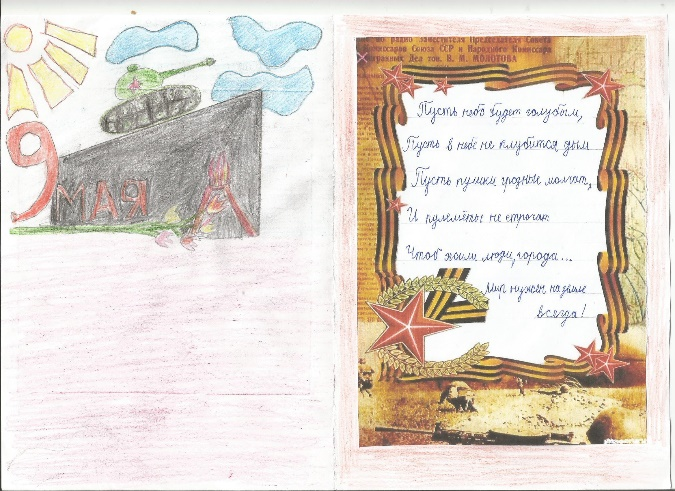 9
МАЯ
радио заместителя Председателя Совета
Комиссаров Союза ССР и Народного Комиссара
Дел тов. В. М. МОЛОТОВА
Пусть небо будет голубым,
Пусть в небе не клубится дым
Пусть пушки грозные молчат,
И пулемёты не строчат
Чтоб жили люди, города...
Мир нужен на земле
всегда!